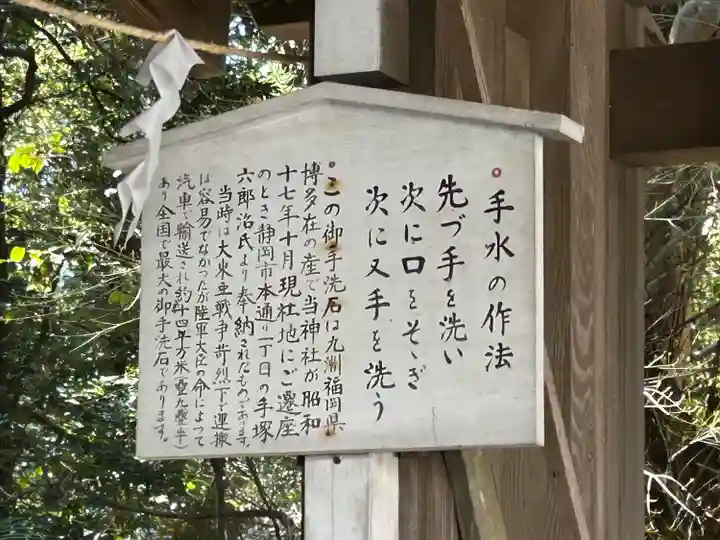 手水の作法
先づ手を洗い
次に口をそゝぎ
次に又手を洗う
この御手洗石は九洲福岡県
博多在の産で当神社が昭和
十七年十月現社地にご遷座
のとき静岡市本通り一丁目の手塚
六郎治氏より奉納されたものであります。
当時は大東亜戦争苛烈下で運搬
は容易でなかったが陸軍大臣の命によって
汽車で輸送され(約十四平方米重九瓲半)
あり全国で最大の御手洗石であります。